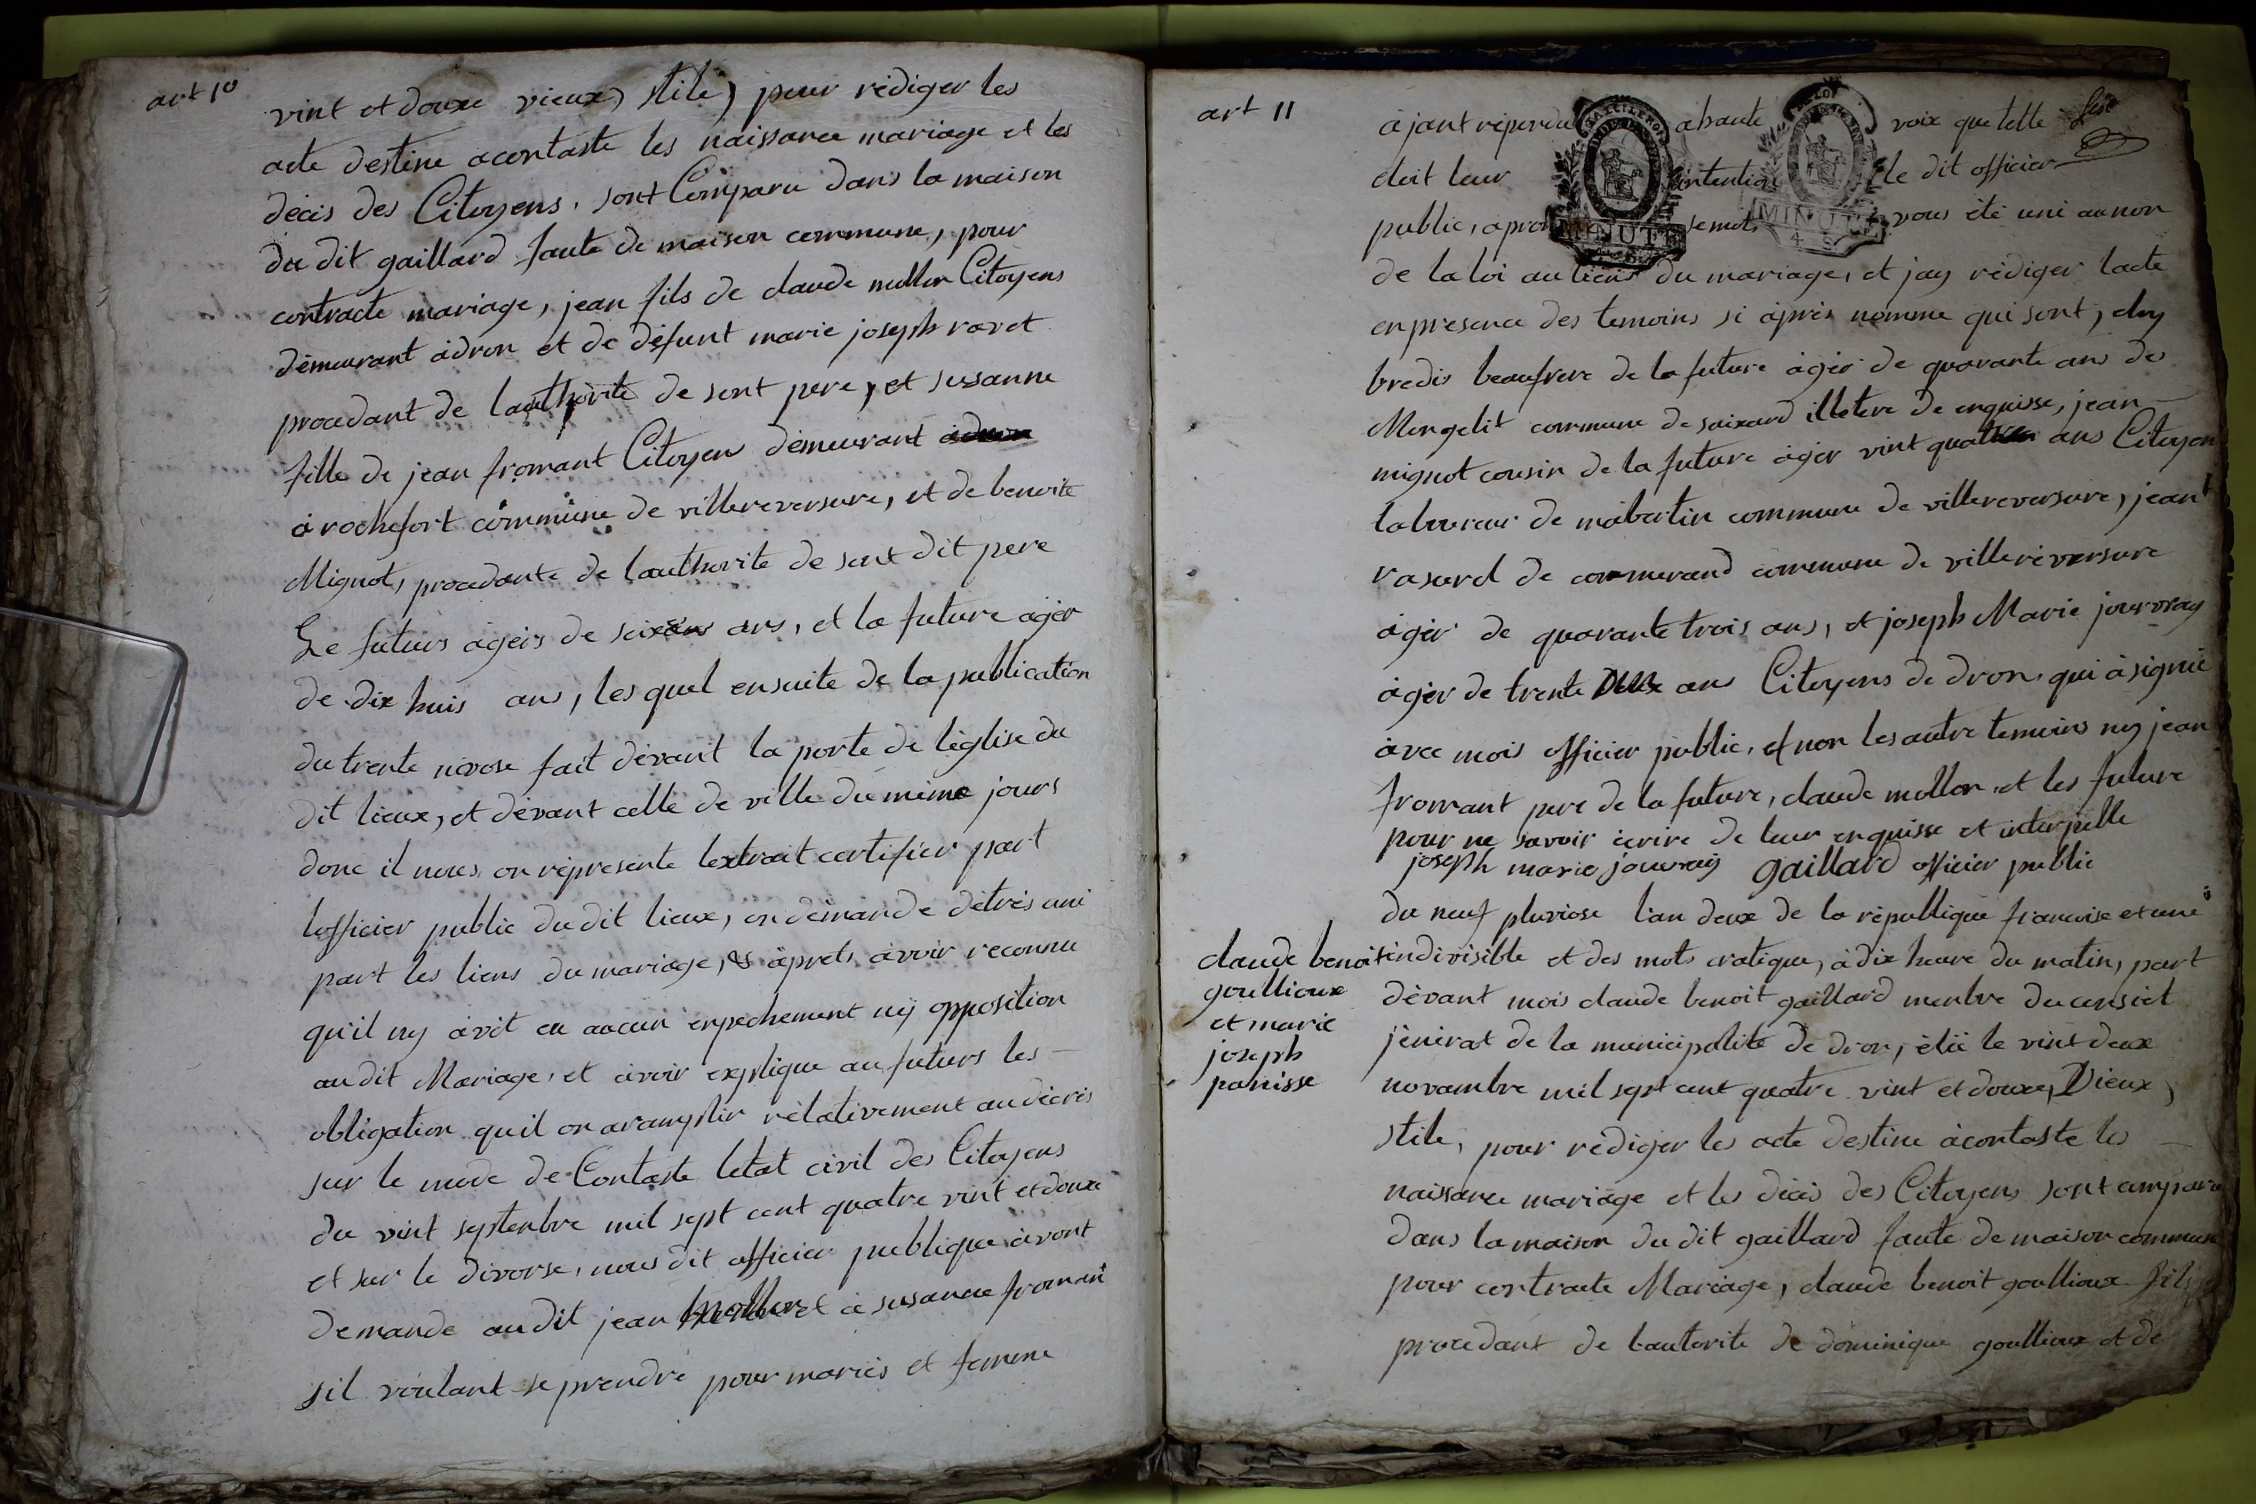 art 10
vint et douxe vieux, stile, pour rédiger les
acte destine acontaste les naissance mariage et les
décis des Citoyens, sont Comparu dans la maison
du dit gaillard faute de maison commune, pour
contracte mariage, jean fils de claude mollon Citoyens
démeurant àdron et de défunt marie joseph ravet
procedant de lauthorite de sont pere, et susanne
fille de jean fromant Citoyen démeurant
à rochefort commune de villereversure, et de benoite
Mignot, procedante de lauthorite de sont dit pere
Le futurs àgéis de ans, et la future agér
de dix huis ans, les quel ensuite de la publication
du trente nivose fait dévant la porte de léglise du
dit lieux, et dévant celle de ville du même jours
donc il nous on réprésente lextrait certifiér part
lofficier public du dit lieux, on démande détrés uni
part les liens du mariage, & àprets àvoir reconnu
qu'il ny àvét eu aucun enpechement ny opposition
au dit Mariage, et àvoir explique au futurs les
obligation quil on aramplir rélativement au décrés
sur le mode de Contaste letat civil des Citoyens
du vint septenbre mil sept cent quatre vint et douxe
et sur le divorse, nous dit officier publique àvont
demande au dit jean mollon et à susanne fromant
sil voulant se prendre pour mariés et femme
art 11
àjant réponda ahaute voix que telle
étoit leur intention le dit officier
public, apro se mots vous été uni au non
de la loi au liens du mariage, et jay rédiger lacte
en presence des temoins si àprès nomme qui sont,
bredis beaufrere de la future àgér de quarante ans de
Mongelit commune de illetere de enquisse, jean
mignot cousin de la future àgér vint quatre ans Citoyen
laboureur de mabertin commune de villereversure, jean
rasurel de commerand commune de villereversure
àgér de quarante trois ans, et joseph Marie jouvray
àgér de trente deux ans Citoyens de dron, qui àsignié
àvec mois officier public, et non les autre temoins ny jean
fromant pere de la future, claude mollon et les future
pour ne savoir écrire de leur enquisse et interpelle
joseph marie jouvray gaillard officier public
du neuf pluviose l'an deux de la république francoise et une
claude benoit
goullioux
et marie
joseph
panisse
indivisible et des mots cratique, à dix heure du matin, part
dévant mois claude benoit gaillard menbre du consiel
jénérat de la municipalité de dron, élü le vint deux
novambre mil sept cent quatre vint et douxe, Vieux,
stile, pour rédiger les acte destine àcontaste les
naissance mariage et les décis des Citoyens sont compara
dans la maison du dit gaillard faute de maison commune
pour contracte Mariage, claude benoit goullioux fils
procedant de lautorite de dominique goullioux et de
MINUTE
MINUTE